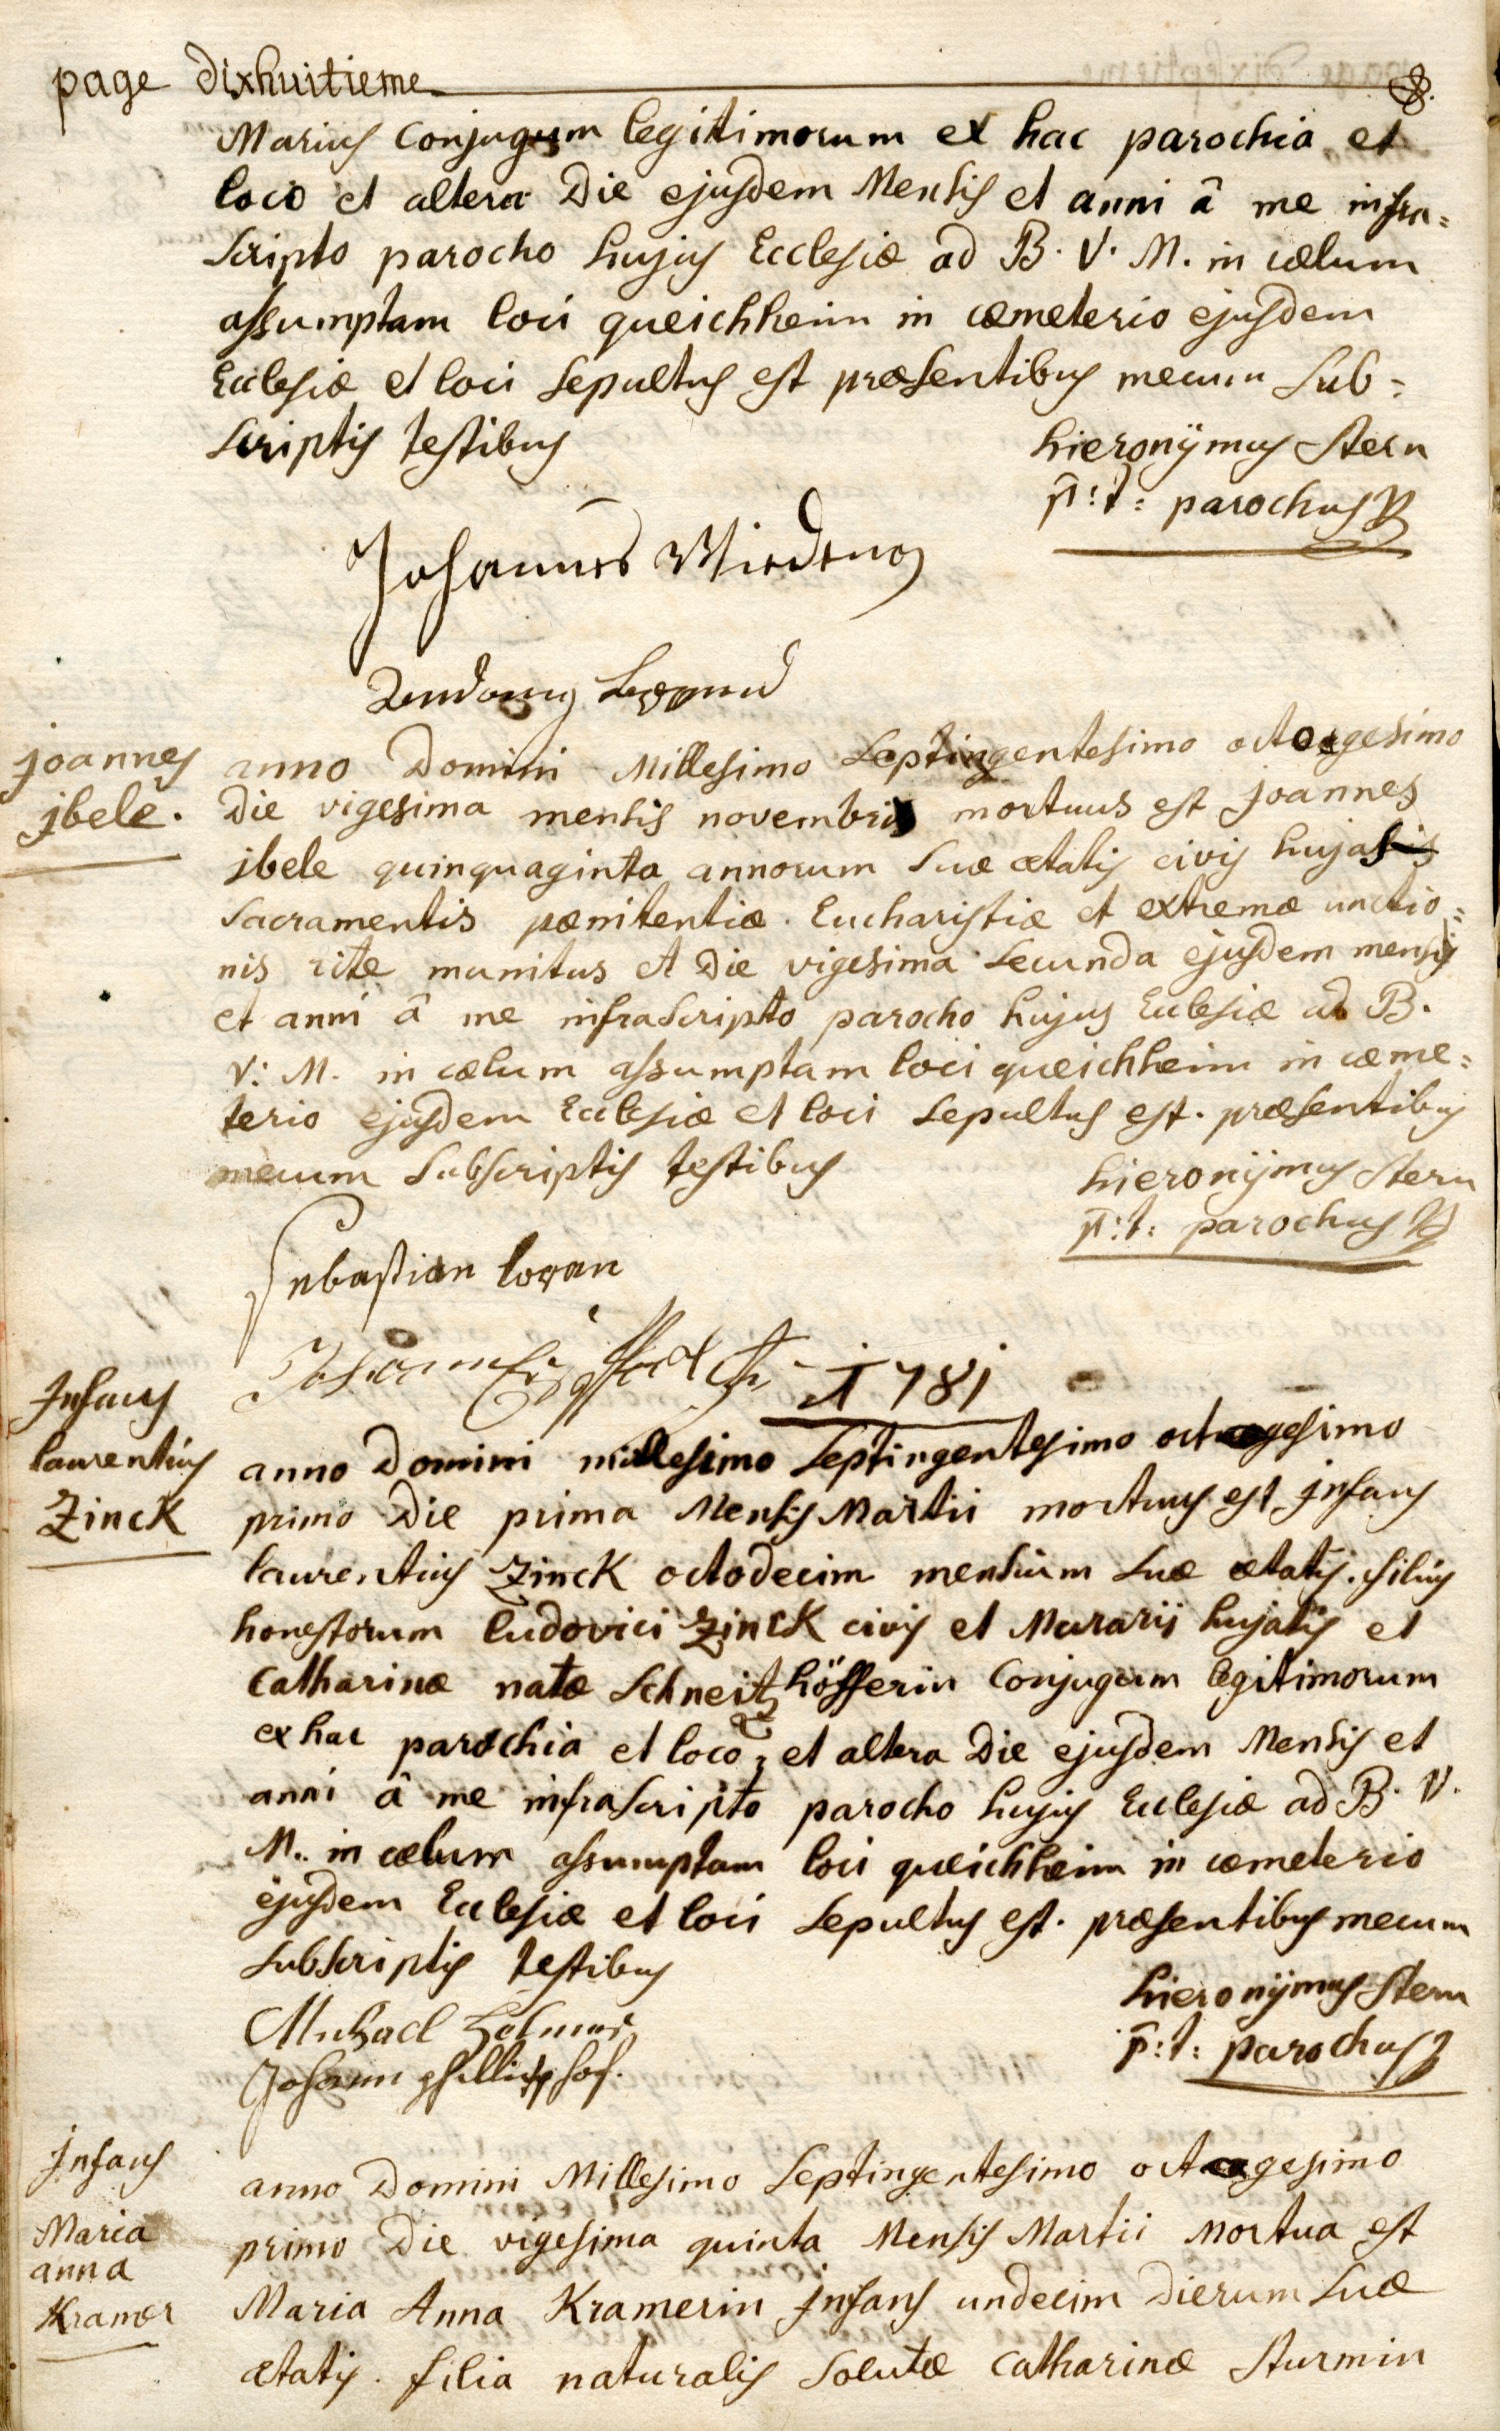 page dixhuitieme
Marius Conjugum legitimorum ex hac parochia et
loco et altera Die ejusdem Mensis et anni â me infra=
scripto parocho hujus Ecclesiæ ad B. V. M. in cælum
assumptam loci queichheim in cæmeterio ejusdem
Ecclesiæ et loci sepultus est præsentibus mecum sub=
scriptis testibus
hieronÿmus Stern
p: t: parochus
Johannes
joannes
jbele.
anno Domini Millesimo septingentesimo octogesimo
Die vigesima mensis novembris mortuus est joannes
jbele quinquaginta annorum suæ ætatis civis hujatis
sacramentis pænitentiæ Eucharistiæ et extremæ unctio=
nis rite munitus et Die vigesima secunda ejusdem mensis
et anni â me infrascripto parocho hujus Ecclesiæ ad B.
V: M. in cælum assumptam loci queichheim in cæme=
terio ejusdem Ecclesiæ et loci sepultus est. præsentibus
mecum subscriptis testibus
hieronÿmus Stern
p: t: parochus
Sebastian
1781
Infans
laurentius
Zinck
anno Domini millesimo septingentesimo octogesimo
primo Die prima Mensis Martii mortuus est jnfans
laurentius Zinck octodecim mensium suæ ætatis. filius
honestorum ludovici Zinck civis et Murarii hujatis et
Catharinæ natæ Schneitzhöfferin Conjugum legitimorum
ex hac parochia et loco, et altera Die ejusdem Mensis et
anni â me infrascripto parocho hujus Ecclesiæ ad B. V.
M. in cælum assumptam loci queichheim in cæmeterio
ejusdem Ecclesiæ et loci sepultus est. præsentibus mecum
subscriptis testibus
hieronÿmus Stern
p: t: parochus
Michael
Johann
jnfans
Maria
anna
Kramer
anno Domini Millesimo septingentesimo octogesimo
primo Die vigesima quinta Mensis Martii Mortua est
Maria Anna Kramerin jnfans undecim Dierum suæ
ætatis. filia naturalis solutæ Catharinæ Sturmin